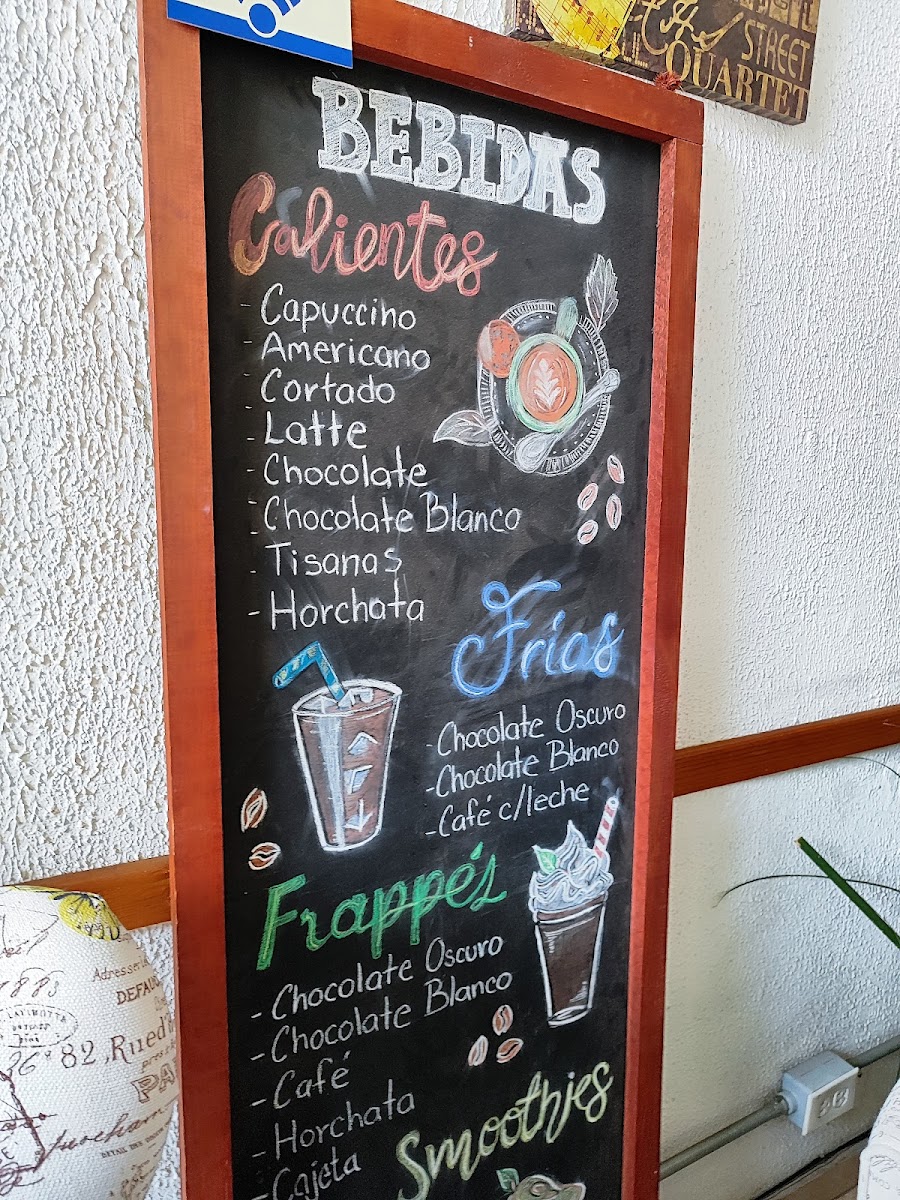 STREET
QUARTET
BEBIDAS
Calientes
- Capuccino
- Americano
- Cortado
- Latte
- Chocolate
- Chocolate Blanco
- Tisanas
- Horchata
Frias
- Chocolate Oscuro
- Chocolate Blanco
- Café c/leche
Frappés
- Chocolate Oscuro
- Chocolate Blanco
- Café
- Horchata
- Cajeta
Smoothies
1883
82, Rued